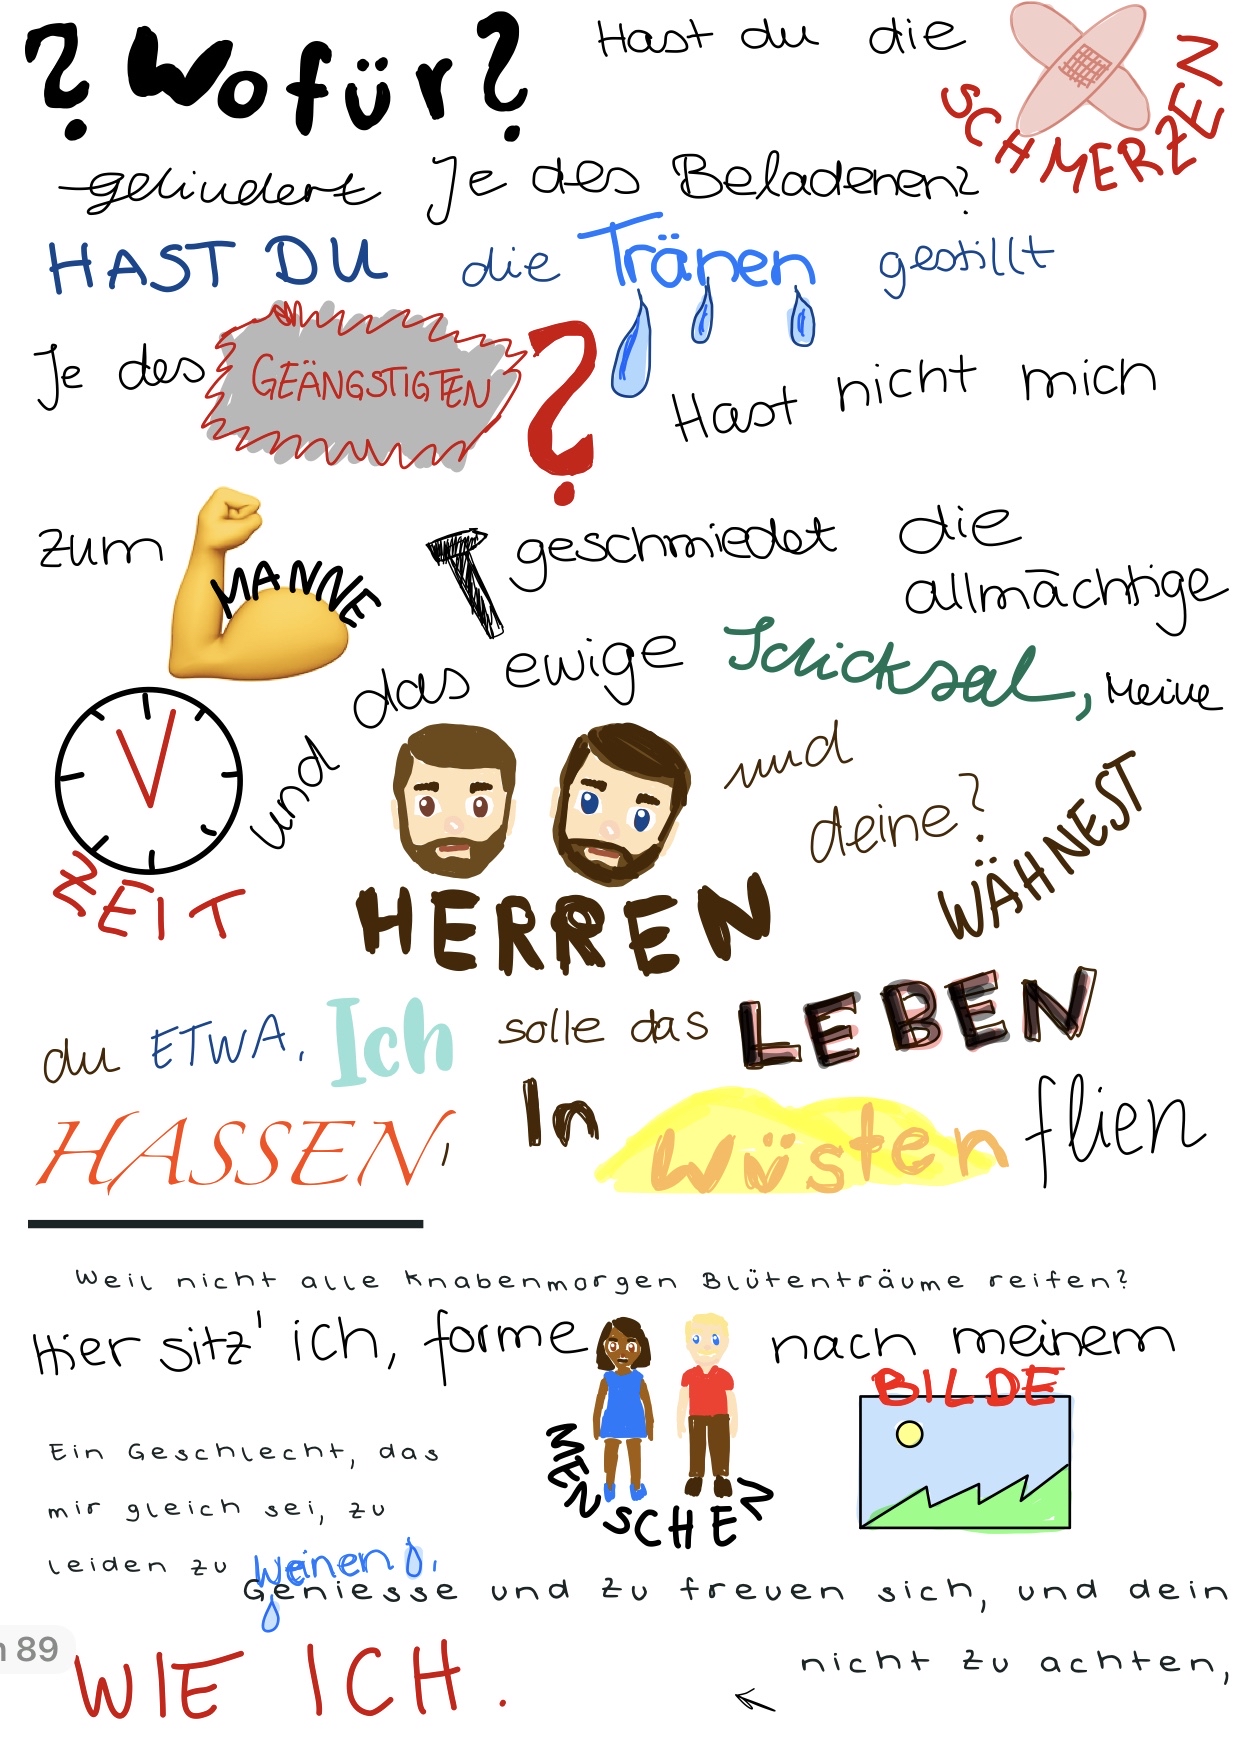 ? Wofür? Hast du die SCHMERZEN
gelindert Je des Beladenen?
HAST DU die Tränen gestillt
Je des GEÄNGSTIGTEN ? Hast nicht mich
zum MANNE geschmiedet die
allmächtige
ZEIT und das ewige Schicksal, Meine
HERREN und
deine?
WÄHNEST
du ETWA, Ich solle das LEBEN
HASSEN, In Wüsten flien
Weil nicht alle Knabenmorgen Blütenträume reifen?
Hier sitz' ich, forme MENSCHEN nach meinem
BILDE
Ein Geschlecht, das
mir gleich sei, zu
leiden zu weinen,
Geniesse und zu freuen sich, und dein
nicht zu achten,
WIE ICH.
89